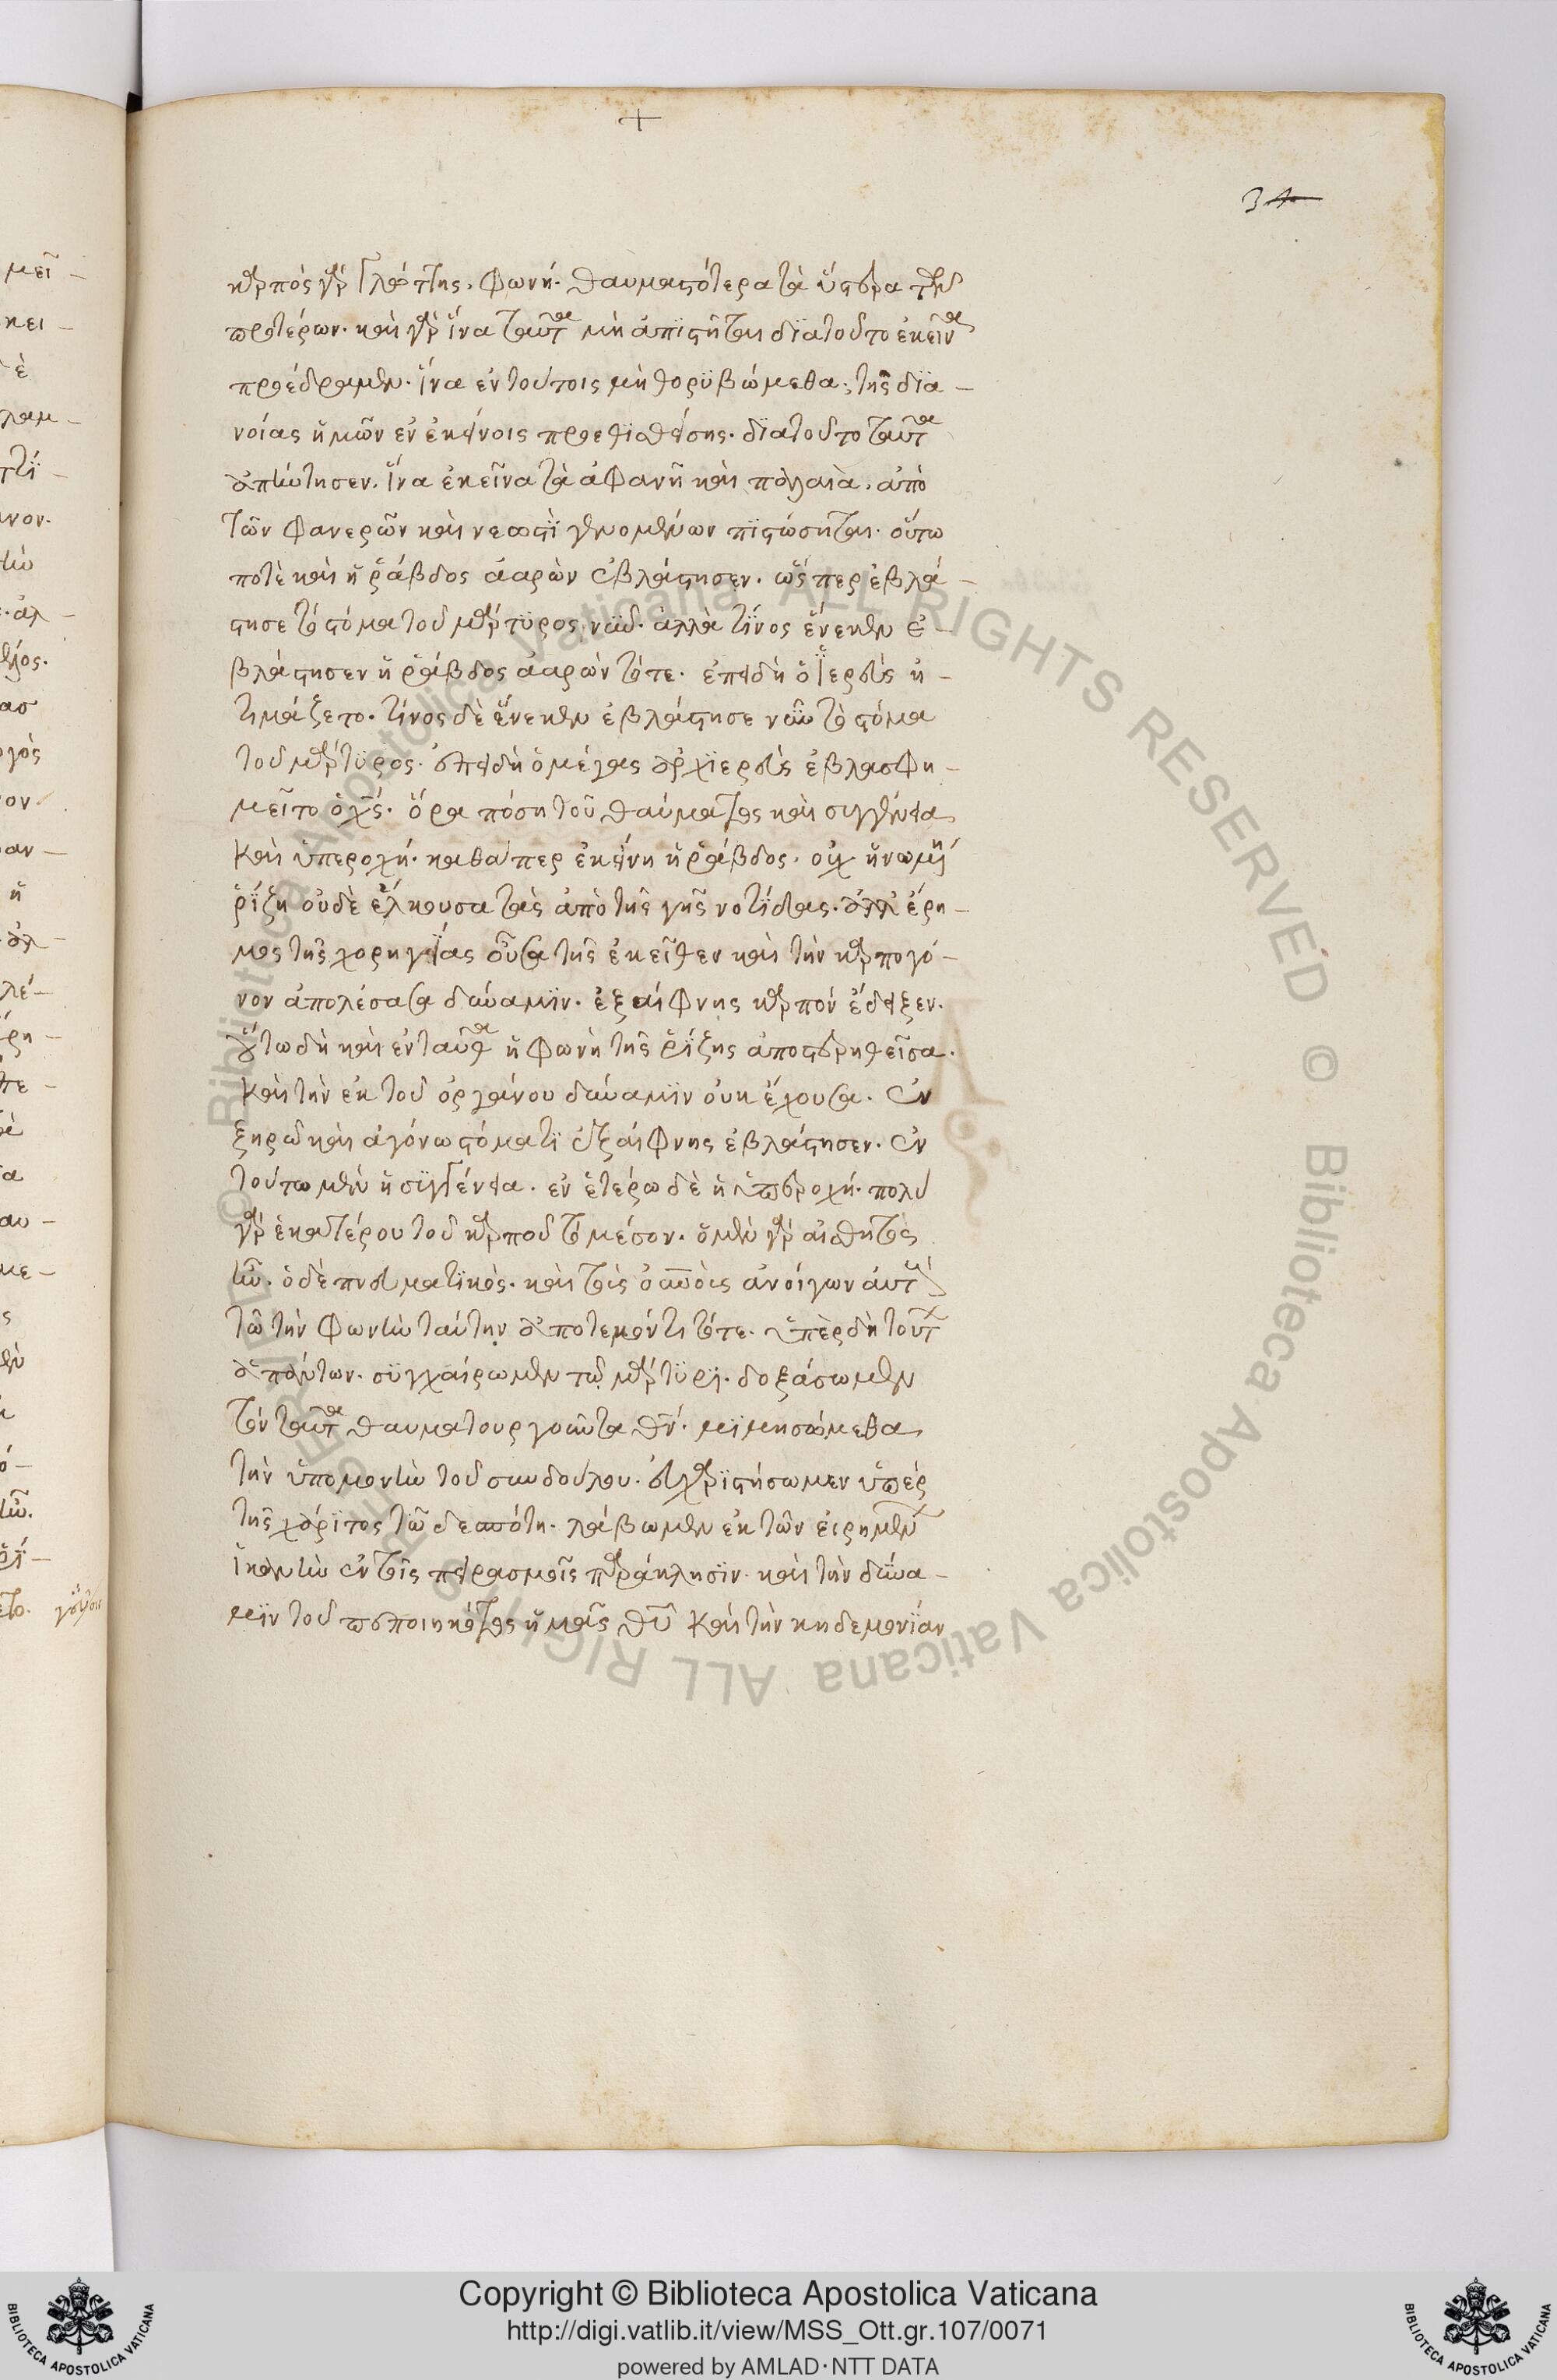 +
34
καρπὸς γὰρ γλώττης, φωνή. θαυμαστότερα τὰ ὕστερα τῶν
προτέρων. καὶ γὰρ ἵνα ταῦτα μὴ ἀπιστῆται διατοῦτο ἐκεῖνα
προέδραμεν. ἵνα ἐν τούτοις μὴ θορϋβώμεθα, τῆς δϊα-
νοίας ἡμῶν ἐν ἐκείνοις προεθισθείσης. διατοῦτο ταῦτα
ἀπήντησεν. ἵνα ἐκεῖνα τὰ ἀφανῆ καὶ παλαιὰ, ἀπὸ
τῶν φανερῶν καὶ νεωστὶ γενομένων πϊστώσηται. οὕτω
ποτὲ καὶ ἡ ῥάβδος ἀαρὼν ἐβλάστησεν. ὥς περ ἐβλά-
στησε τὸ στόμα τοῦ μάρτϋρος νῦν. ἀλλὰ τίνος ἕνεκεν ἐ-
βλάστησεν ἡ ῥάβδος ἀαρὼν τότε. ἐπειδὴ ὁ ἱερεὺς ἠ-
τιμάζετο. τίνος δὲ ἕνεκεν ἐβλάστησε νῦν τὸ στόμα
τοῦ μάρτϋρος. ἐπειδὴ ὁ μέγας ἀρχϊερεὺς ἐβλασφη-
μεῖτο ὁ χς. ὅρα πόση τοῦ θαύματος καὶ συγγένεια
καὶ ὑπεροχή. καθάπερ ἐκείνη ἡ ῥάβδος. οὐχ ἡνωμένη
ῥίζη οὐδὲ ἕλκουσα τὰς ἀπὸ τῆς γῆς νοτίδας. ἀλλ' ἔρη-
μος τῆς χορηγείας οὖσα τῆς ἐκεῖθεν καὶ τὴν καρπογό-
νον ἀπολέσασα δύναμϊν. ἐξαίφνης καρπὸν ἔδειξεν.
οὕτω δὴ καὶ ἐνταῦθα ἡ φωνὴ τῆς ῥίζης ἀποστερηθεῖσα.
καὶ τὴν ἐκ τοῦ ὀργάνου δύναμϊν οὐκ ἔχουσα. ἐν
ξηρῶ καὶ ἀγόνω στόματι ἐξαίφνης ἐβλάστησεν. ἐν
τούτω μὲν ἡ συγγένεια. ἐν ἑτέρω δὲ ἡ ὑπεροχή. πολὺ
γὰρ ἑκατέρου τοῦ καρποῦ τὸ μέσον. ὁ μὲν γὰρ αἰσθητὸς
ἦν. ὁ δὲ πνευματϊκὸς. καὶ τοὺς οὐνοὺς ἀνοίγων αὐτῶ
τῶ τὴν φωνὴν ταύτην ἀποτεκόντι τότε. ὑπὲρ δὴ τούτων
ἁπάντων. συγχαίρωμεν τῶ μάρτϋρϊ. δοξάσωμεν
τὸν ταῦτα θαυματουργοῦντα θν. μϊμησώμεθα
τὴν ὑπομονὴν τοῦ συνδούλου. εὐχαρϊστήσωμεν ὑπὲρ
τῆς χάρϊτος τῶ δεσπότη. λάβωμεν ἐκ τῶν εἰρημένων
ἱκανὴν ἐν τοῖς πειρασμοῖς παράκλησϊν. καὶ τὴν δύνα-
μϊν τοῦ πεποιηκότος ἡμᾶς θυ καὶ τὴν κηδεμονίαν
Copyright © Biblioteca Apostolica Vaticana
http://digi.vatlib.it/view/MSS_Ott.gr.107/0071
powered by AMLAD·NTT DATA
© Biblioteca Apostolica Vaticana ALL RIGHTS RESERVED © Biblioteca Apostolica Vaticana ALL RIGHTS RESERVED
BIBLIOTECA APOSTOLICA VATICANA
BIBLIOTECA APOSTOLICA VATICANA